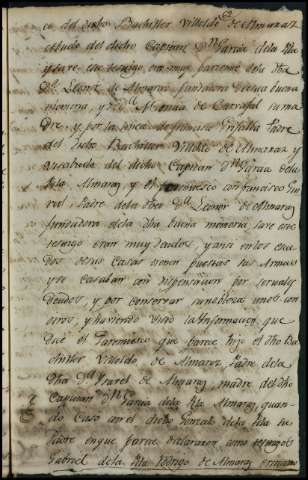 ca del dicho Bachiller Villeldo de Almaraz
estudo del dicho Capitan Dn Garcia dela Pila
y fue este testigo, era muy pariente dela dha
Da Leonor de Almaraz fundadora desta buena
memoria, y de Da Mencia de Carvajal su ma
dre, y por la linea de francisco Grifalba Padre
del dicho Bachiller de Almaraz y
visabuelo del dicho Capitan Dn Garcia dela
Pila Almaraz, y el Parentesco con francisco
Padre dela dha Da Leonor de Almaraz
fundadora dela dha buena memoria, save este
testigo eran muy deudos, y ansi en los escu
dos desus Casas tienen puestas sus Armas
y se casaban con dispensacion por ser tales
deudos, y por conservar su nobleza unos con
otros, y haviendo visto la Informacion que
dice el Parentesco que parece hizo el dho Ba
chiller Villeldo de Almaraz Padre dela
dha Da Ysavel de Almaraz, madre del dho
Capitan Dn Garcia dela Pila Almaraz, quan
do Casó con el dicho Gonzalo dela Pila su
Padre en que parece declararon como testigos
Gabriel dela Pila Rodrigo de Almaraz